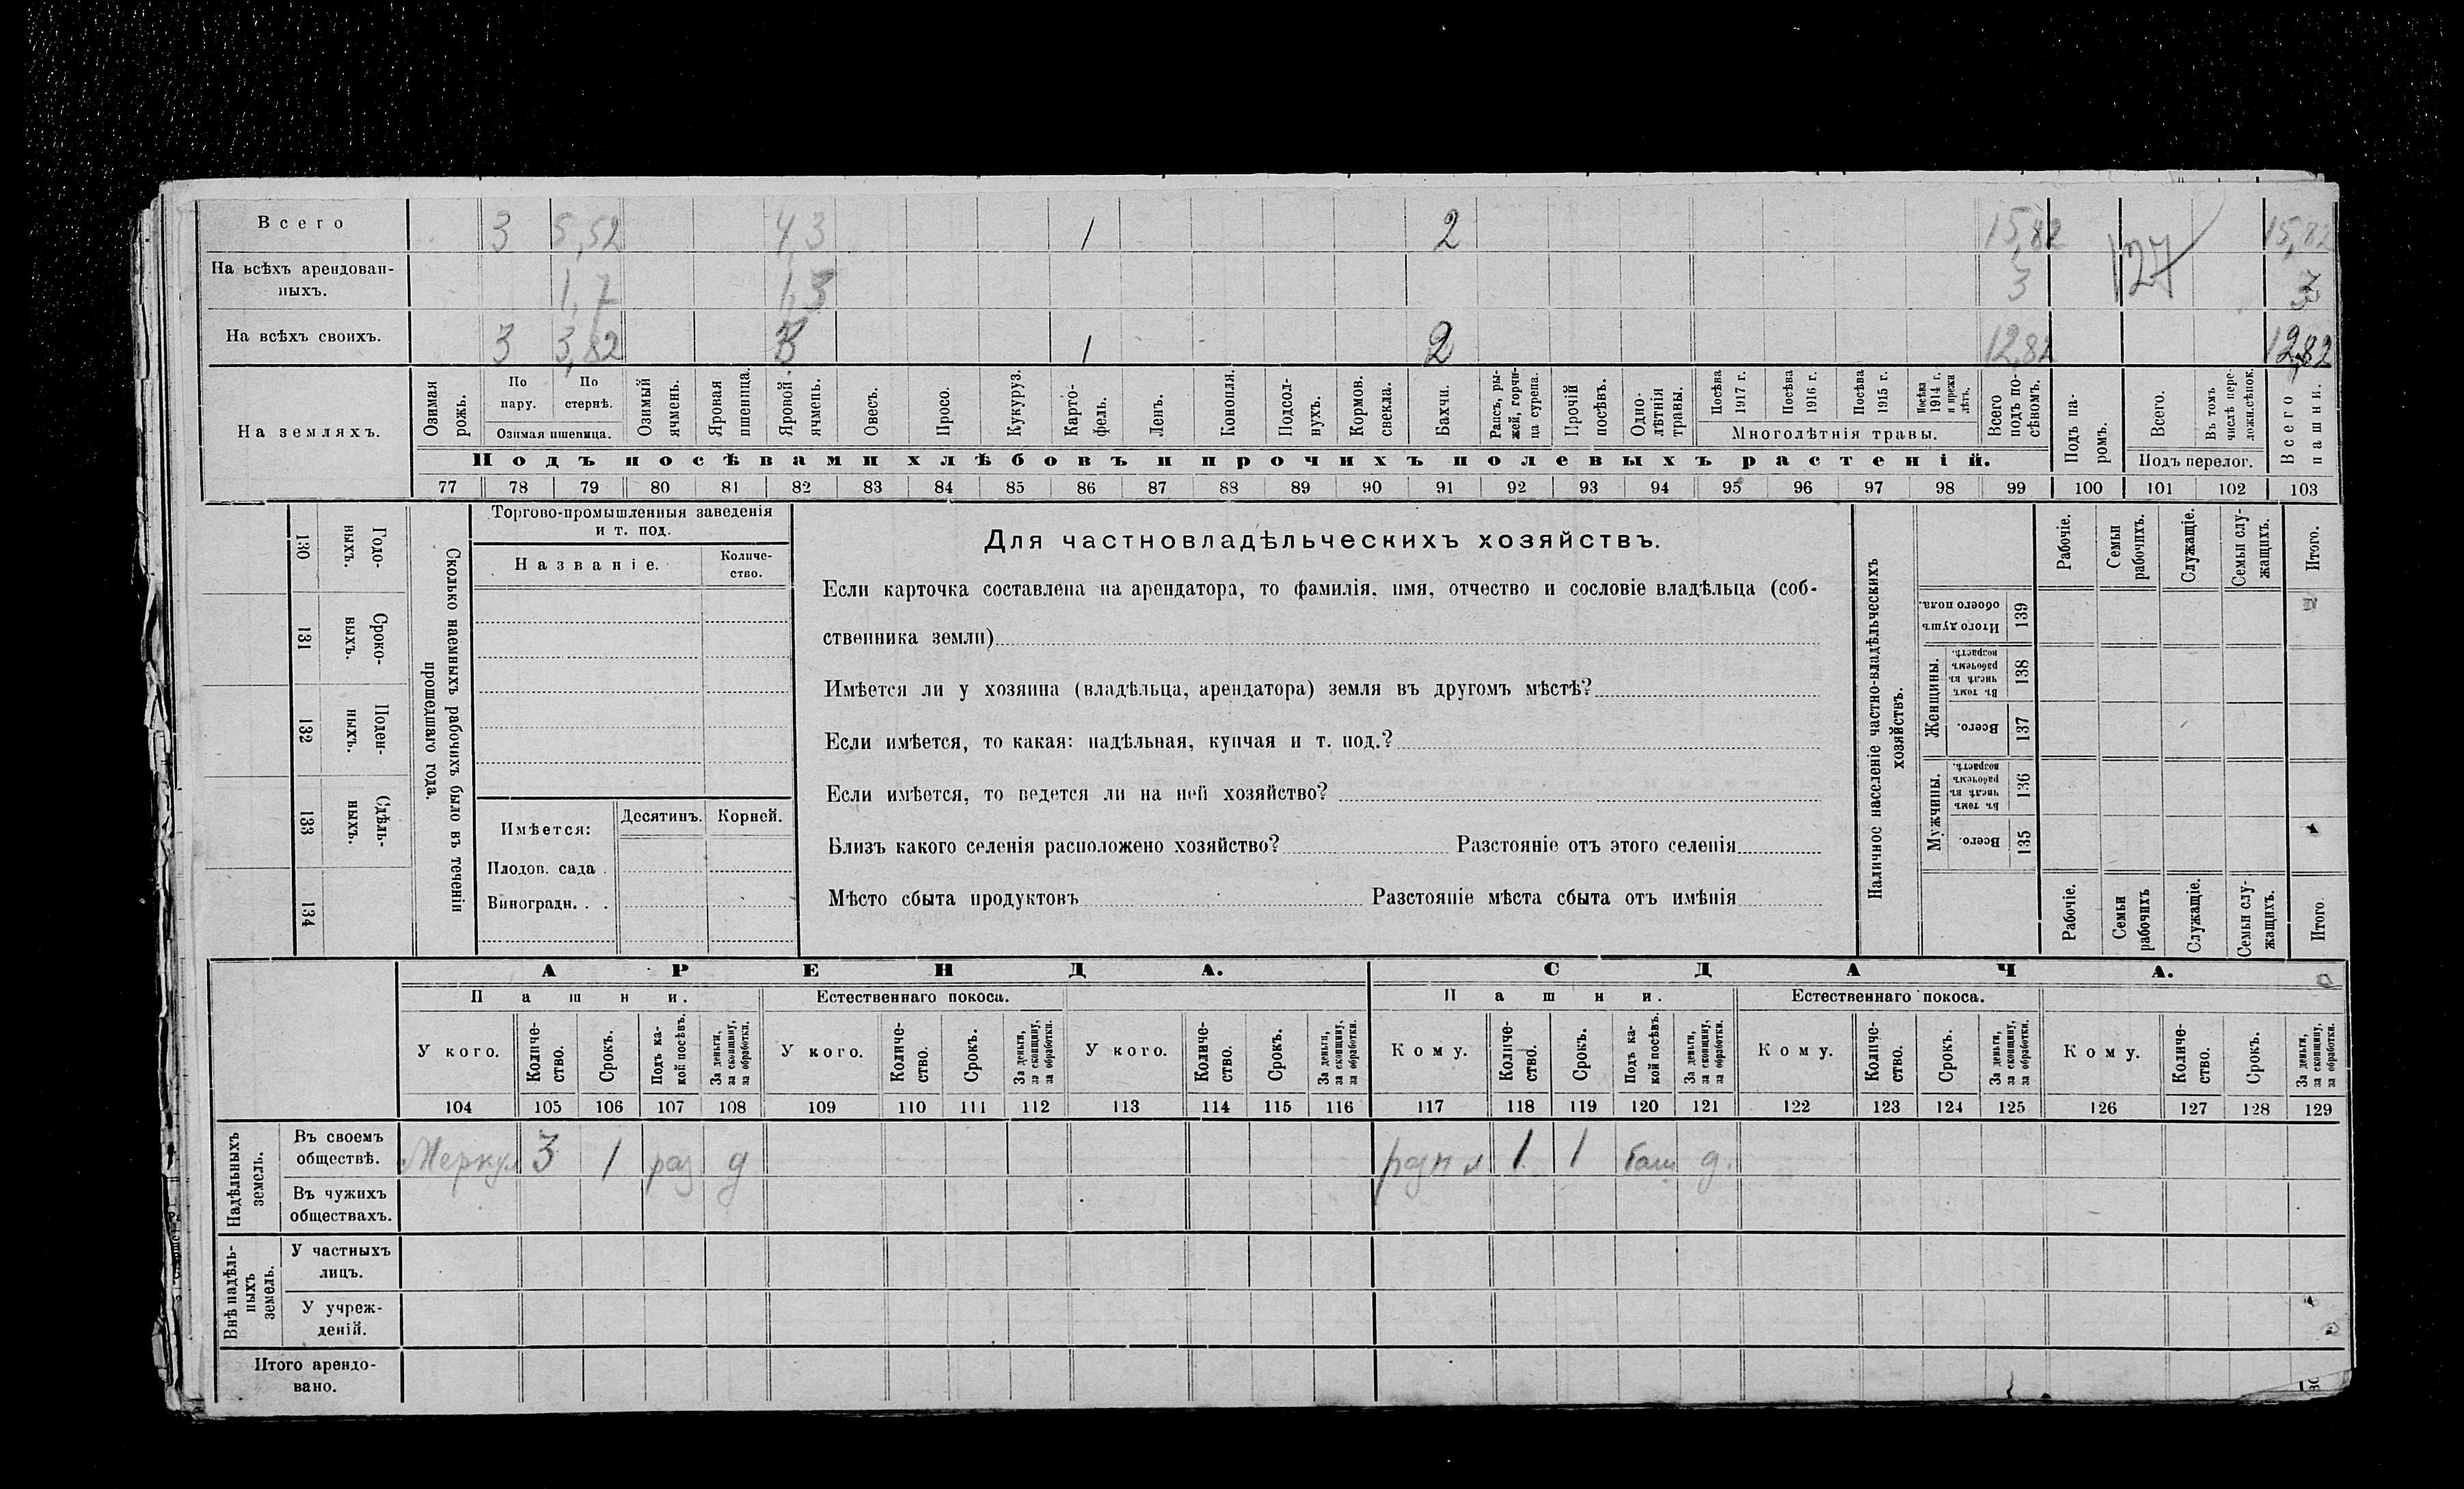 Всего 3 5,52 4,3 1 2 15,82 15,82
127
На всѣхъ арендован-
ныхъ. 1,7 1,3 3 3
На всѣхъ своихъ. 3 3,82 3 1 2 12,82 12,82
На земляхъ.
Озимая рожь.
По пару.
По стернѣ.
Озимая пшеница.
Озимый ячмень.
Яровая пшеница.
Яровой ячмень.
Овесъ.
Просо.
Кукуруз.
Карто-
фель.
Ленъ.
Конопля.
Подсол-
нухъ.
Кормов.
свекла.
Бахчи.
Рапсъ, ры-
жей, горчи-
ца сурепа.
Прочій
посѣвъ.
Одно-
лѣтнія
травы.
Посѣва
1917 г.
Посѣва
1916 г.
Посѣва
1915 г.
Посѣва
1914 г.
и прежн
лѣтъ.
Многолѣтнія травы.
Всего
подъ по-
сѣвомъ.
Подъ па-
ромъ.
Всего.
Въ томъ
числѣ пере-
ложн.сѣнок.
Подъ перелог.
Всего
пашни.
Подъ посѣвами хлѣбовъ и прочихъ полевыхъ растеній.
77 78 79 80 81 82 83 84 85 86 87 88 89 90 91 92 93 94 95 96 97 98 99 100 101 102 103
Сколько наемныхъ рабочихъ было въ теченіи
прошедшаго года.
Годо-
выхъ.
130
Сроко-
выхъ.
131
Поден-
ныхъ.
132
Сдѣль-
ныхъ.
133
134
Торгово-промышленныя заведенія
и т. под.
Названіе.
Количе-
ство.
Имѣется:
Десятинъ.
Корней.
Плодов. сада .
Виноградн. . .
Для частновладѣльческихъ хозяйствъ.
Если карточка составлена на арендатора, то фамилія, имя, отчество и сословіе владѣльца (соб-
ственника земли)
Имѣется ли у хозяина (владѣльца, арендатора) земля въ другомъ мѣстѣ?
Если имѣется, то какая: надѣльная, купчая и т. под.?
Если имѣется, то ведется ли на ней хозяйство?
Близъ какого селенія расположено хозяйство? Разстояніе отъ этого селенія
Мѣсто сбыта продуктовъ Разстояніе мѣста сбыта отъ имѣнія
Наличное населеніе частно-владѣльческихъ
хозяйствъ.
Рабочіе.
Семьи
рабочихъ.
Служащіе.
Семьи слу-
жащихъ.
Итого.
Итого душъ
обоего пола.
139
Женщины.
Въ томъ
числѣ въ
рабочемъ
возрастѣ.
138
Всего.
137
Мужчины.
Въ томъ
числѣ въ
рабочемъ
возрастѣ.
136
Всего.
135
Рабочіе.
Семьи
рабочихъ
Служащіе.
Семьи слу-
жащихъ.
Итого.
АРЕНДА.
СДАЧА.
Пашни.
Естественнаго покоса.
Пашни.
Естественнаго покоса.
У кого.
Количе-
ство.
Срокъ.
Подъ ка-
кой посѣвъ.
За деньги,
за скопщину,
за обработки.
У кого.
Количе-
ство.
Срокъ.
За деньги,
за скопщину,
за обработки.
У кого.
Количе-
ство.
Срокъ.
За деньги,
за скопщину,
за обработки.
Кому.
Количе-
ство.
Срокъ.
Подъ ка-
кой посѣвъ.
За деньги,
за скопщину,
за обработки.
Кому.
Количе-
ство.
Срокъ.
За деньги,
за скопщину,
за обработки.
Кому.
Количе-
ство.
Срокъ.
За деньги,
за скопщину,
за обработки.
104 105 106 107 108 109 110 111 112 113 114 115 116 117 118 119 120 121 122 123 124 125 126 127 128 129
Надѣльныхъ
земель.
Въ своемъ
обществѣ. 3 1 раз д 1 1 д.
Въ чужихъ
обществахъ.
Внѣ надѣль-
ныхъ
земель.
У частныхъ
лицъ.
У учреж-
деній.
Итого арендо-
вано.